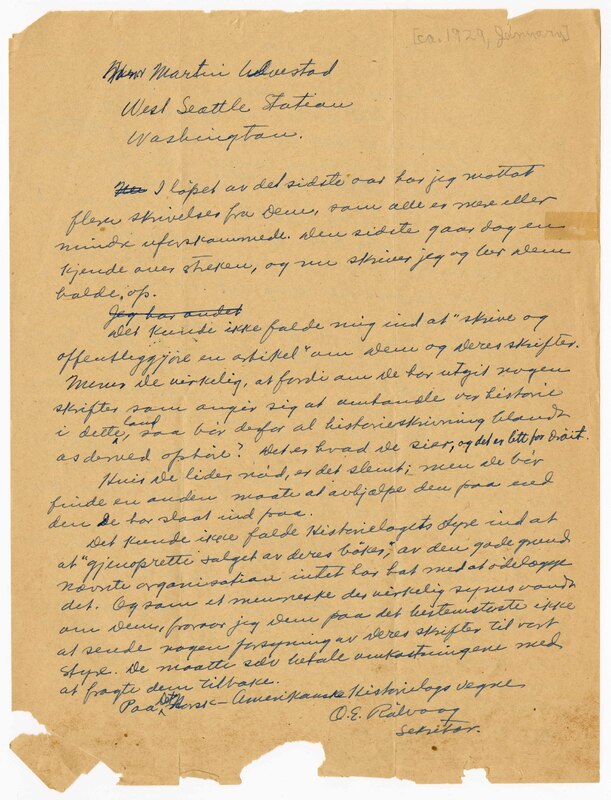 [ca. 1929, January]
Herr Martin Ulvestad
West Seattle Station
Washington.
I løpet av det sidste aar har jeg mottat
flere skrivelser fra Dem, som alle er mere eller
mindre uforskammede. Den sidste gaar dog en
kjende over streken, og nu skriver jeg og ber Dem
holde op.
Jeg har andet
Det kunde ikke falde mig ind at "skrive og
offentliggjøre en artikel" om Dem og Deres skrifter.
Mener De virkelig, at fordi om De har utgit nogen
skrifter som angir sig at omhandle vor historie
i dette land, saa bør derfor al historieskrivning blandt
os derved ophøre? Det er hvad De sier, og det er litt for drøit.
Hvis De lider nød, er det slemt; men De bør
finde en anden maate at avhjælpe den paa end
den De har slaat ind paa.
Det kunde ikke falde Historielagets Styre ind at
at "gjenopprette salget av deres bøker," av den gode grund
nævnte organisation intet har hat med at ødelægge
det. Og som et menneske der virkelig synes vondt
om Dem, fraraar jeg Dem paa det bestemteste ikke
at sende nogen forsyning av Deres skrifter til vort
Styre. De maatte selv betale omkostningene med
at fragte dem tilbake.
Paa Det Norsk-Amerikanske Historielags vegne
O.E. Rølvaag
Sekretær.